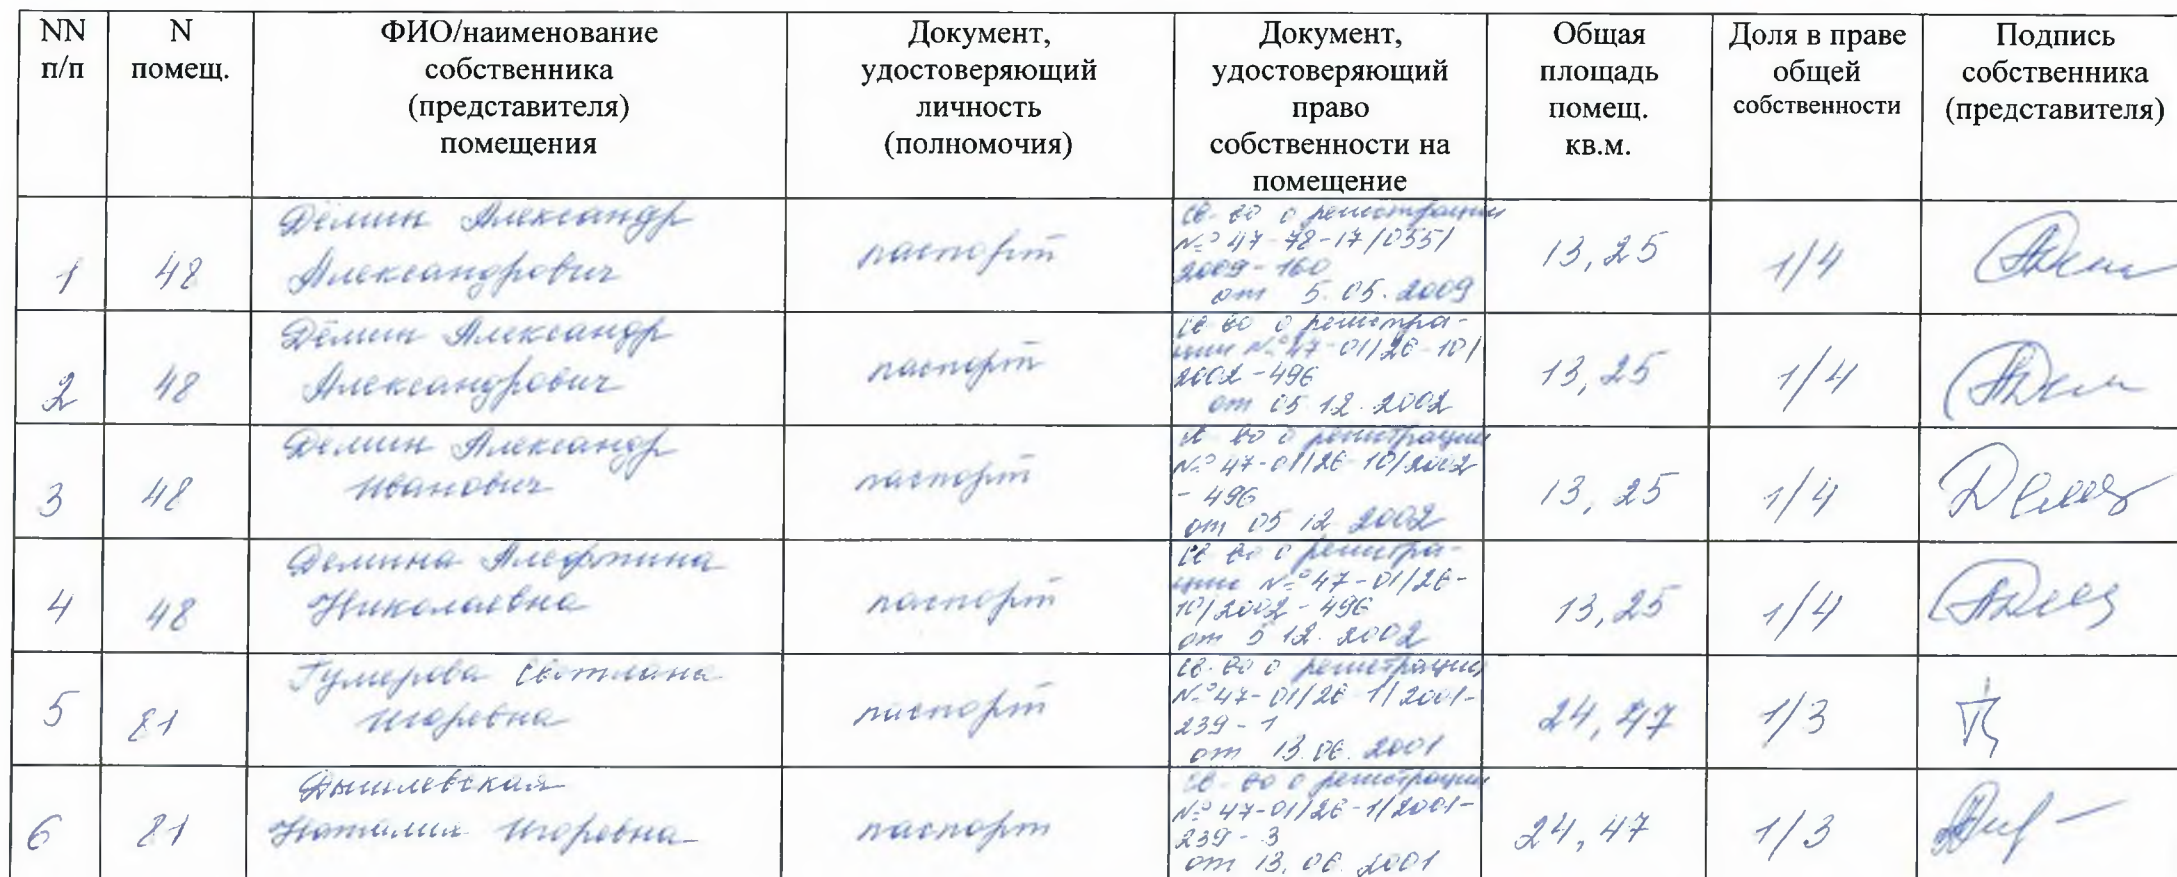 NN п/п
N помещ.
ФИО/наименование
собственника
(представителя)
помещения
Документ,
удостоверяющий
личность
(полномочия)
Документ,
удостоверяющий
право
собственности на
помещение
Общая
площадь
помещ.
кв.м.
Доля в праве
общей
собственности
Подпись
собственника
(представителя)
1
48
Дёмин Александр
Александрович
паспорт
св-во о регистрации
№ 47-78-17/035/
2009-160
от 5.05.2009
13,25
1/4
2
48
Дёмин Александр
Александрович
паспорт
св-во о регистра-
ции № 47-01/26-10/
2002-496
от 05.12.2002
13,25
1/4
3
48
Демин Александр
Иванович
паспорт
св-во о регистрации
№ 47-01/26-10/2002
- 496
от 05 12 2002
13,25
1/4
4
48
Демина Алефтина
Николаевна
паспорт
св-во о регистра-
ции № 47-01/26-
10/2002-496
от 5 12. 2002
13,25
1/4
5
81
Гумерова Светлана
Игоревна
паспорт
св-во о регистрации
№ 47-01/26-1/2001-
239-1
от 13.06.2001
24,47
1/3
6
81
Дышлевская
Наталия Игоревна
паспорт
св-во о регистрации
№ 47-01/26-1/2001-
239-3
от 13.06.2001
24,47
1/3